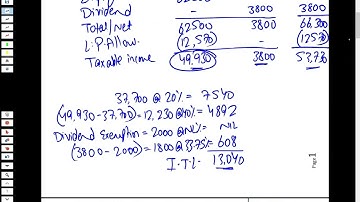 Dividend - 3800 3800
Total/net 62500 3800 66,300
L: P.Allow. (12,570) (12570)
Taxable income 49,930 3800 53,730
37,700 @ 20% = 7540
(49,930-37,700)=12,230 @40% = 4892
Dividend Exemption = 2000 @ Nil% = Nil
(3800-2000) = 1800 @ 33.75% = 608
I.T.L. 13,040
Page 1